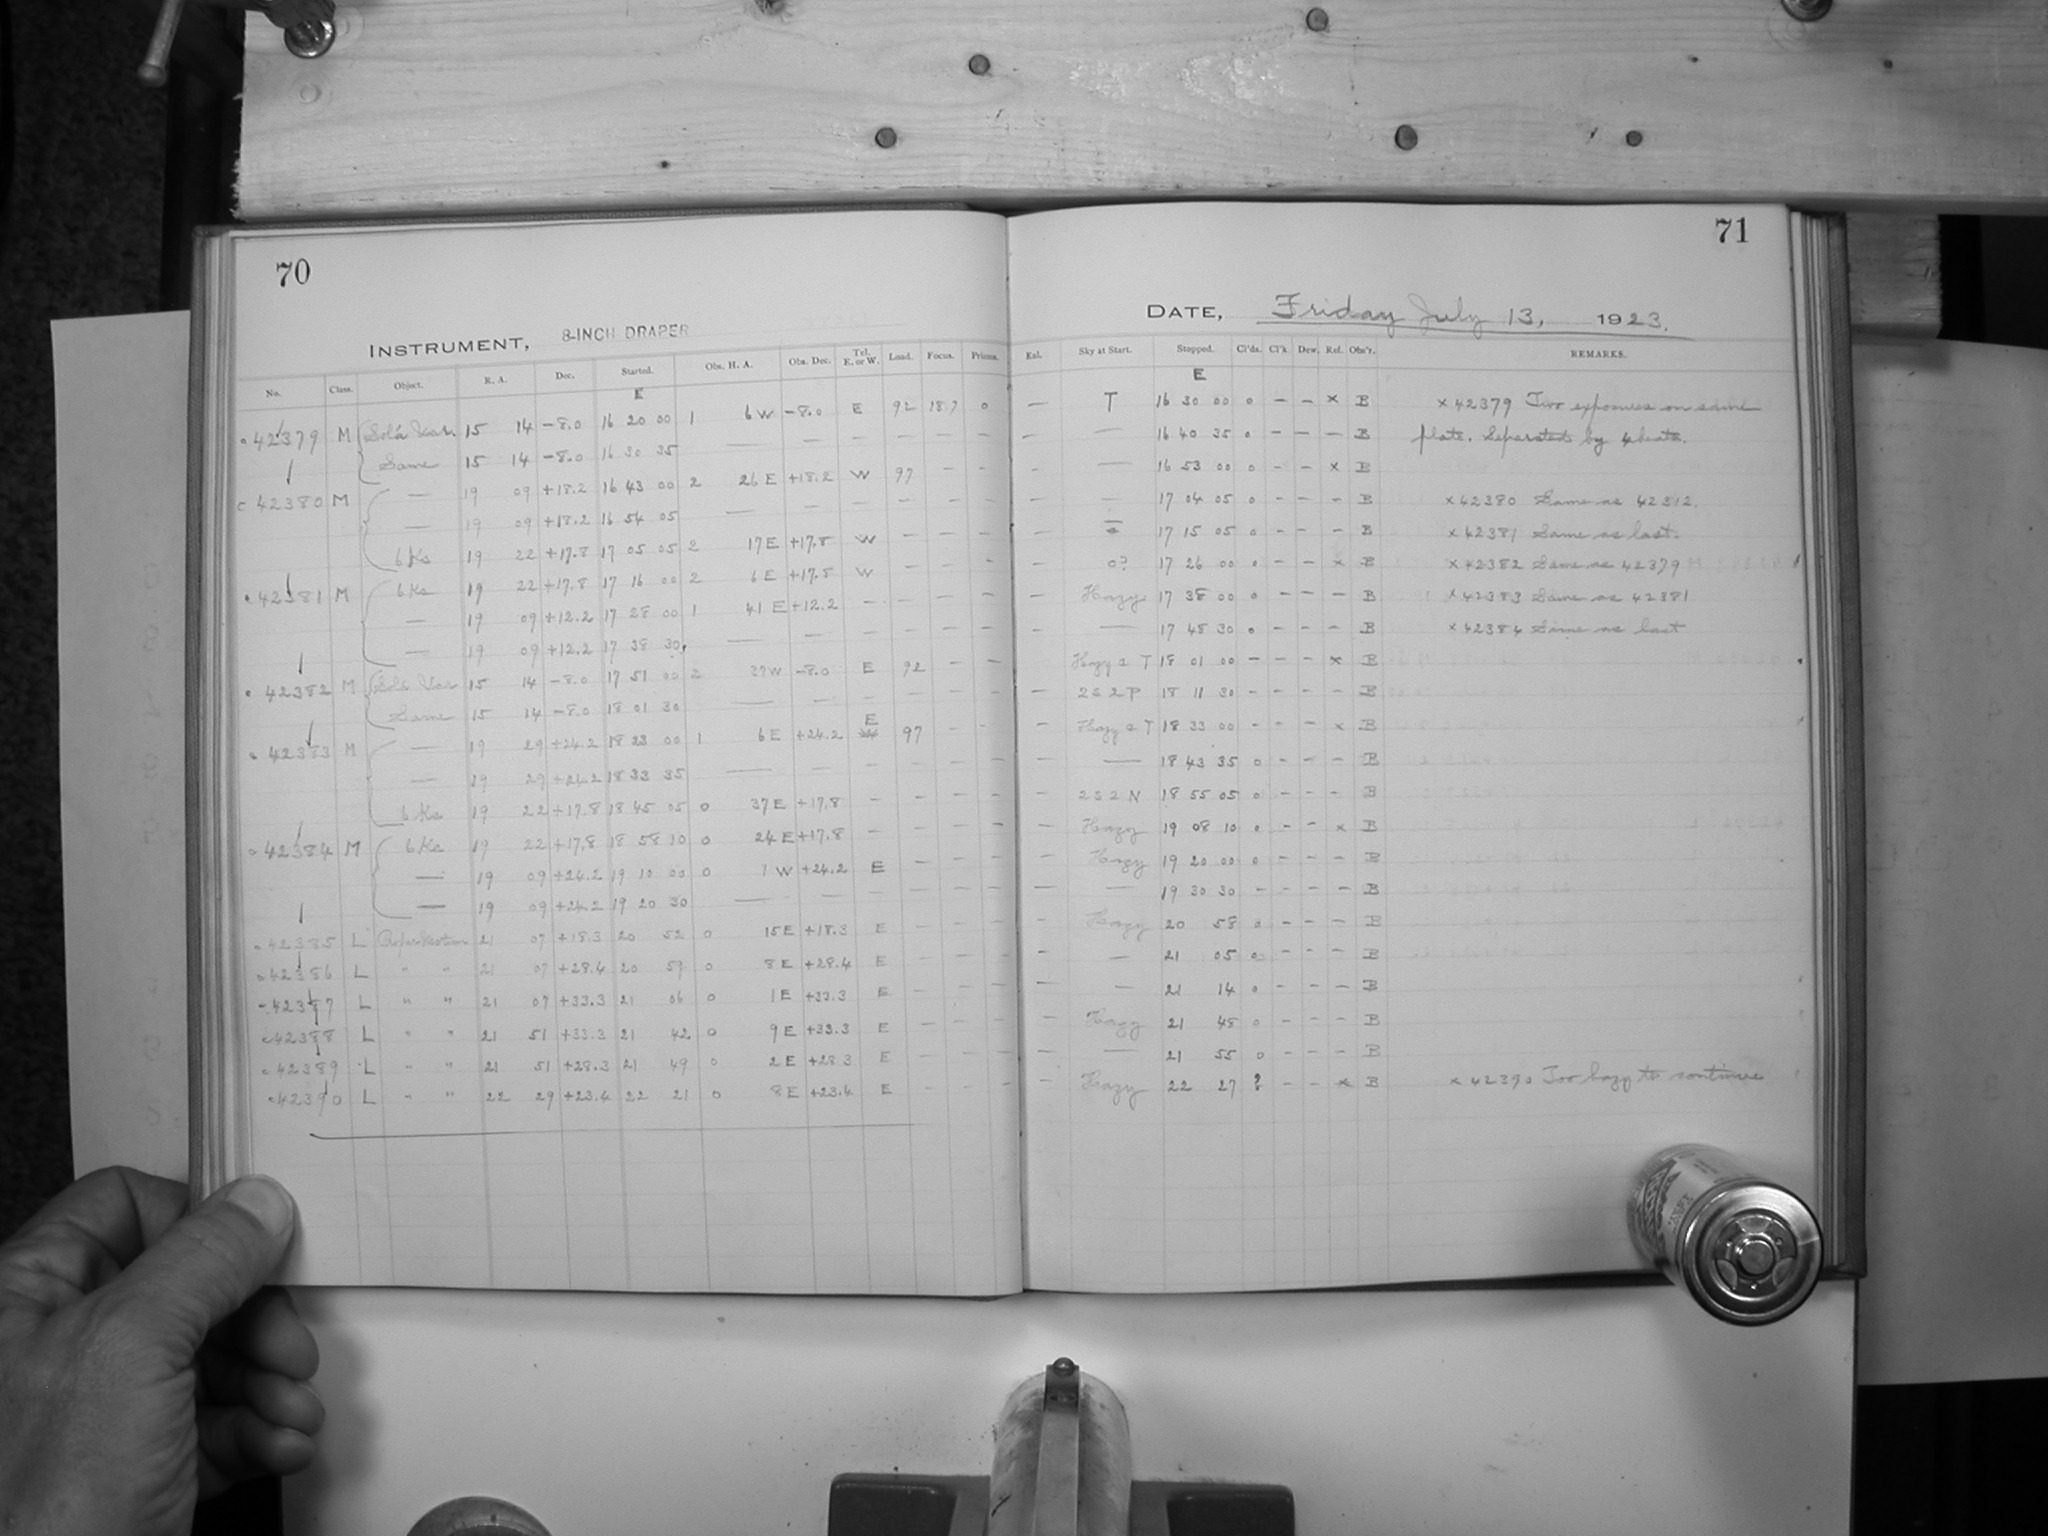 70
INSTRUMENT, 8-INCH DRAPER
No. Class. Object. R. A. Dec. Started. Obs. H. A. Obs. Dec. Tel. E. or W. Load. Focus. Prisms.
E
42379 M 15 14 -8.0 16 20 00 1 6 W -8.0 E 92 18.7 0
Same 15 14 -8.0 16 30 35 — — — — — —
42380 M — 19 09 +18.2 16 43 00 2 26 E +18.2 W 97 — —
— 19 09 +18.2 16 54 05 — — — — — —
6 Ks 19 22 +17.8 17 05 05 2 17 E +17.8 W — — —
42381 M 6 Ks 19 22 +17.8 17 16 00 2 6 E +17.8 W — — —
— 19 09 +12.2 17 28 00 1 41 E +12.2 — — — —
— 19 09 +12.2 17 38 30 — — — — — —
42382 M 15 14 -8.0 17 51 00 2 37 W -8.0 E 92 — —
Same 15 14 -8.0 18 01 30 — — — — — —
42383 M — 19 29 +24.2 18 23 00 1 6 E +24.2 E 97 — —
— 19 29 +24.2 18 33 35 — — — — — —
6 Ks 19 22 +17.8 18 45 05 0 37 E +17.8 — — — —
42384 M 6 Ks 19 22 +17.8 18 58 10 0 24 E +17.8 — — — —
— 19 09 +24.2 19 10 00 0 1 W +24.2 E — — —
— 19 09 +24.2 19 20 30 — — — — — —
42385 L 21 07 +18.3 20 52 0 15 E +18.3 E — — —
42386 L " " 21 07 +28.4 20 59 0 8 E +28.4 E — — —
42387 L " " 21 07 +33.3 21 06 0 1 E +33.3 E — — —
42388 L " " 21 51 +33.3 21 42 0 9 E +33.3 E — — —
42389 L " " 21 51 +28.3 21 49 0 2 E +28.3 E — — —
42390 L " " 22 29 +23.4 22 21 0 8 E +23.4 E — — —
71
DATE, Friday July 13, 1923.
Sky at Start. Stopped. Cl'ds. Cl'k Dew. Ref. Obs'r. REMARKS.
E
— T 16 30 00 0 — — x B x 42379 Two exposures on same
— — 16 40 35 0 — — — B plate. Separated by
— — 16 53 00 0 — — x B
— 17 04 05 0 — — — B x 42380 Same as 42312.
— 17 15 05 0 — — — B x 42381 Same as last.
— 0? 17 26 00 0 — — x B x 42382 Same as 42379
— Hazy 17 38 00 0 — — — B x 42383 Same as 42381
— — 17 48 30 0 — — — B x 42384 Same as last
Hazy 18 01 00 — — — x B
— 2 S 2 P 18 11 30 — — — — B
— Hazy 18 33 00 — — — x B
— — 18 43 35 0 — — — B
— 2 S 2 N 18 55 05 0 — — — B
— Hazy 19 08 10 0 — — x B
— Hazy 19 20 00 0 — — — B
— — 19 30 30 — — — — B
— Hazy 20 58 0 — — — B
— — 21 05 0 — — — B
— — 21 14 0 — — — B
— Hazy 21 48 0 — — — B
— — 21 55 0 — — — B
— Hazy 22 27 ? — — x B x 42390 Too hazy to continue